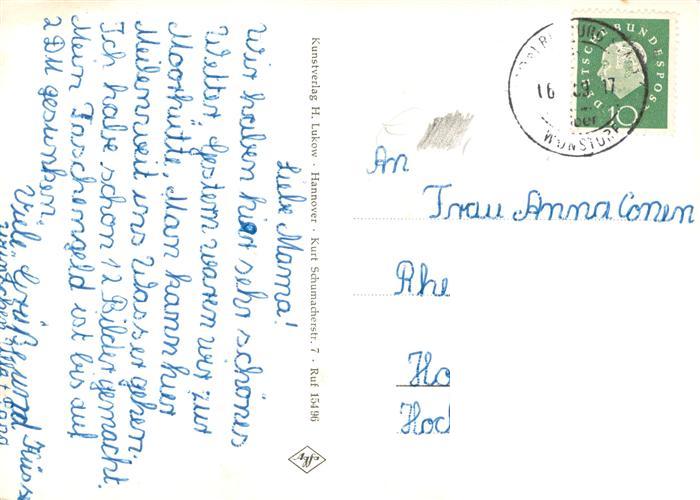 Liebe Mama!
Wir haben hier sehr schönes
Wetter. Gestern waren wir zur
Moorhütte. Man kann hier
Meilenweit ins Wasser gehen.
Ich habe schon 12 Bilder gemacht.
Mein Taschengeld ist bis auf
2 DM gesunken.
Viele Grüße und Küsse
Kunstverlag H. Lukow · Hannover · Kurt Schumacherstr. 7 · Ruf 15496
DEUTSCHE BUNDESPOST
10
16
17
WUNSTORF
An
Frau Anna Conen
Rhe
Ho
Hoc